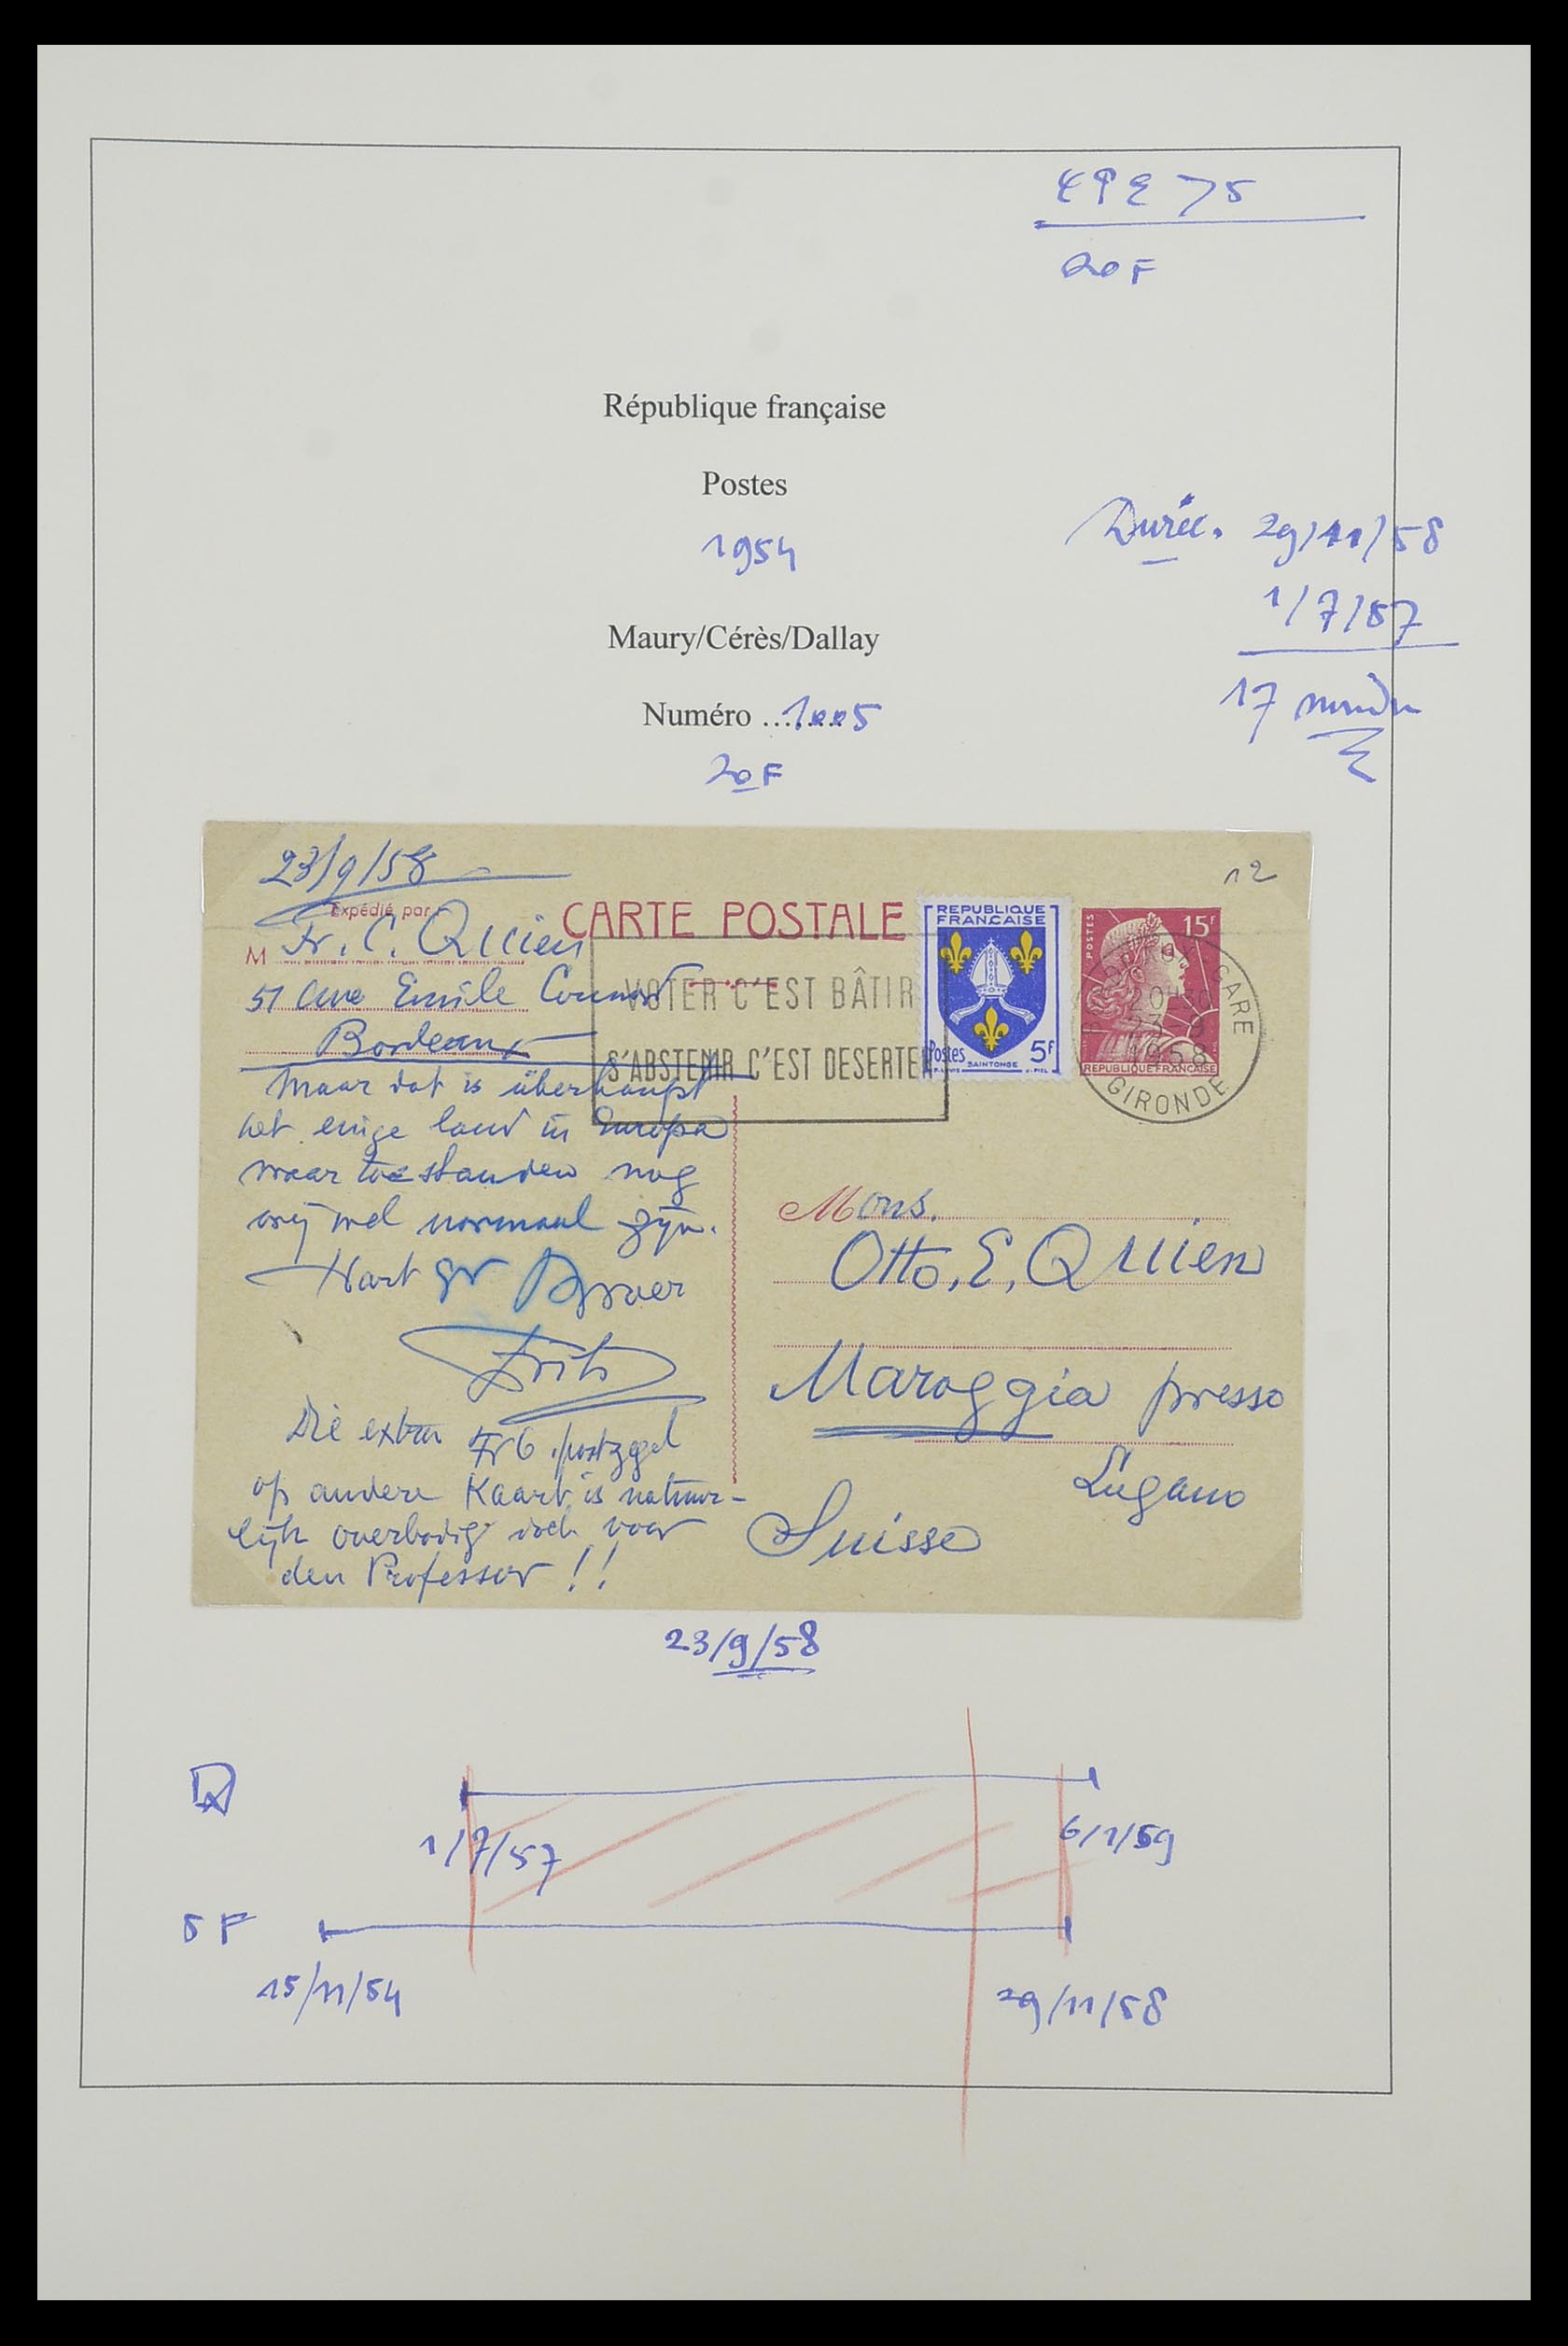 20F
République française
Postes
1954
Durée. 29/11/58
1/7/57
Maury/Cérès/Dallay
Numéro ......... 1005
17
20F
23/9/58
12
Expédié par
CARTE POSTALE
M Fr. C. Quien
51 Emile
Bordeaux
VOTER C'EST BÂTIR
S'ABSTENIR C'EST DESERTER
REPUBLIQUE
FRANCAISE
Postes 5F
SAINTONGE
POSTES 15F
REPUBLIQUE FRANCAISE
GARE
20H30
23-9
1958
GIRONDE
maar dat is überhaupt
het enige land in Europa
waar toestanden nog
vrijwel normaal zijn.
Hart gr Broer
Frits
Die extra Fr 6 postzegel
op andere Kaart is natuur-
lijk overbodig doch voor
den Professor !!
Mons.
Otto. E. Quien
Maroggia presso
Lugano
Suisse
23/9/58
1/7/57
6/1/59
5 F
15/11/54
29/11/58